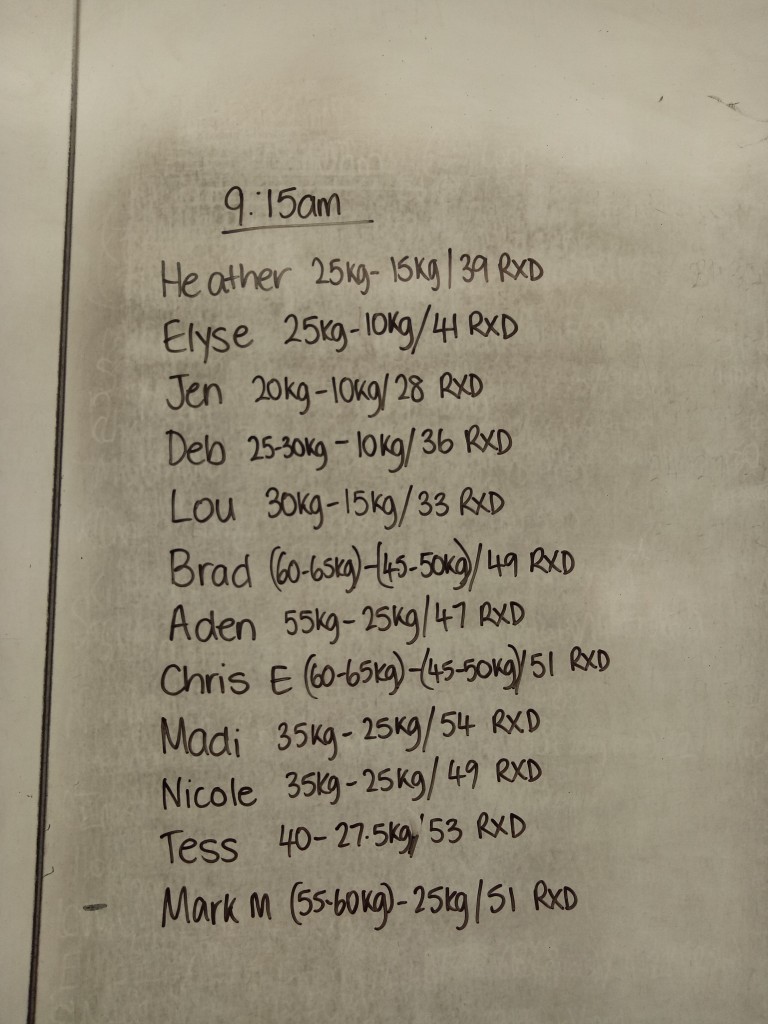 9:15am
Heather 25kg-15kg/39 RXD
Elyse 25kg-10kg/41 RXD
Jen 20kg-10kg/28 RXD
Deb 25-30kg-10kg/36 RXD
Lou 30kg-15kg/33 RXD
Brad (60-65kg)-(45-50kg)/49 RXD
Aden 55kg-25kg/47 RXD
Chris E (60-65kg)-(45-50kg)/51 RXD
Madi 35kg-25kg/54 RXD
Nicole 35kg-25kg/49 RXD
Tess 40-27.5kg/53 RXD
- Mark M (55-60kg)-25kg/51 RXD